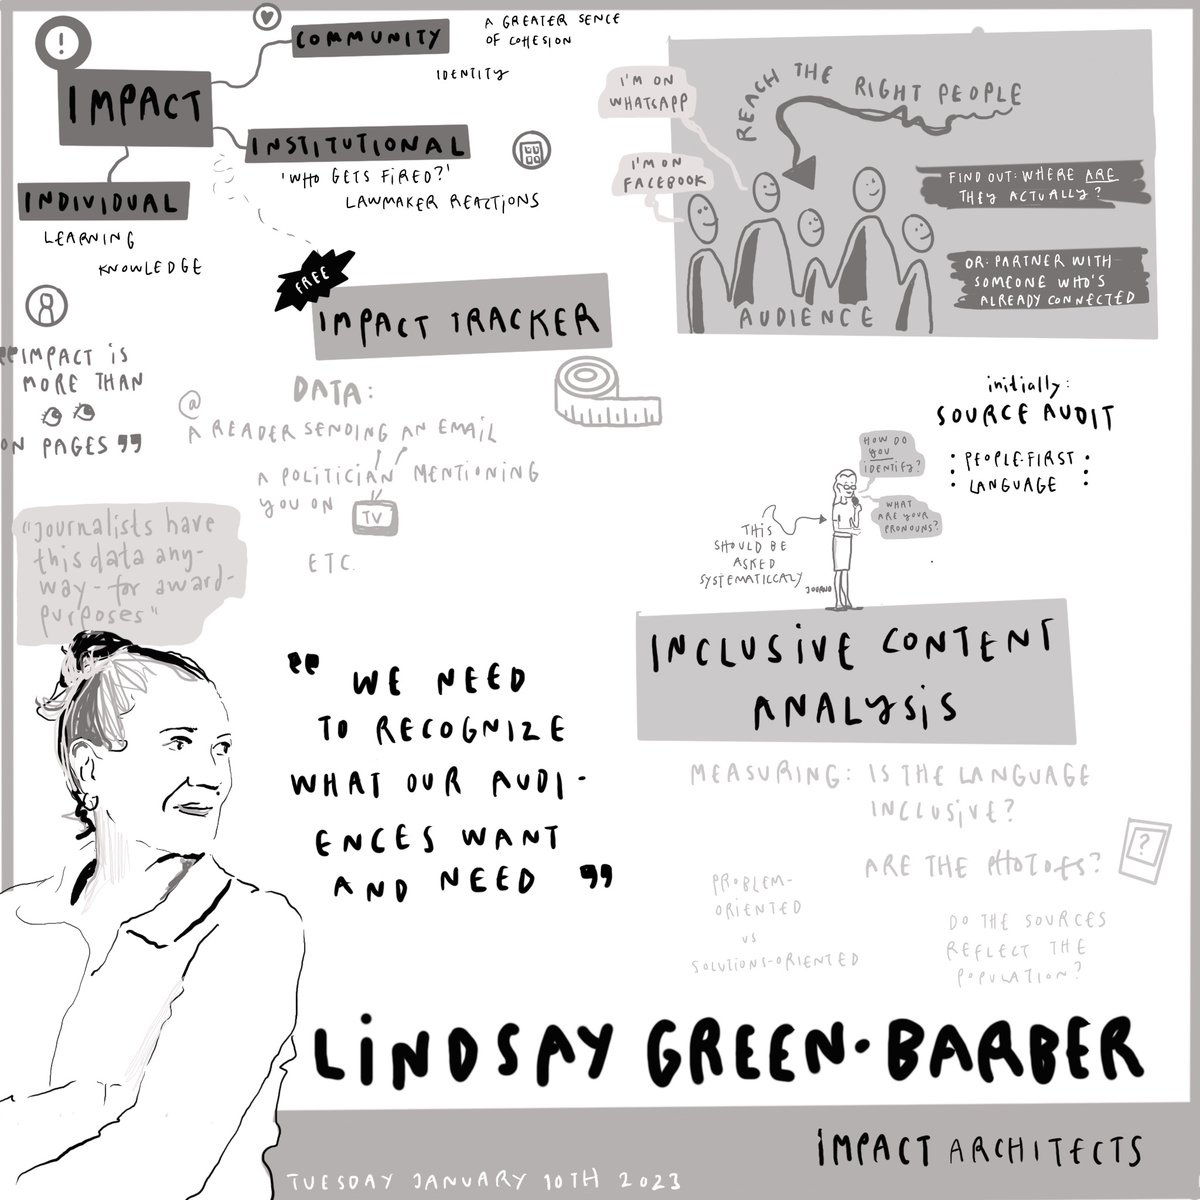 !
IMPACT
COMMUNITY
A GREATER SENCE
OF COHESION
IDENTITY
INSTITUTIONAL
'WHO GETS FIRED?'
LAWMAKER REACTIONS
INDIVIDUAL
LEARNING
KNOWLEDGE
"IMPACT IS
MORE THAN
ON PAGES"
FREE
IMPACT TRACKER
DATA:
@
A READER SENDING AN EMAIL
A POLITICIAN MENTIONING
YOU ON
TV
ETC.
"Journalists have
this data any-
way - for award-
purposes"
I'M ON
WHATSAPP
I'M ON
FACEBOOK
REACH THE RIGHT PEOPLE
FIND OUT: WHERE ARE
THEY ACTUALLY?
OR: PARTNER WITH
SOMEONE WHO'S
ALREADY CONNECTED
AUDIENCE
initially:
SOURCE AUDIT
PEOPLE-FIRST
LANGUAGE
HOW DO
YOU
IDENTIFY?
WHAT
ARE YOUR
PRONOUNS?
THIS
SHOULD BE
ASKED
SYSTEMATICCALY
JOURNO
INCLUSIVE CONTENT
ANALYSIS
MEASURING: IS THE LANGUAGE
INCLUSIVE?
ARE THE PHOTO'S?
?
PROBLEM-
ORIENTED
VS
SOLUTIONS-ORIENTED
DO THE SOURCES
REFLECT THE
POPULATION?
"WE NEED
TO RECOGNIZE
WHAT OUR AUDI-
ENCES WANT
AND NEED"
LINDSAY GREEN-BARBER
IMPACT ARCHITECTS
TUESDAY JANUARY 10TH 2023